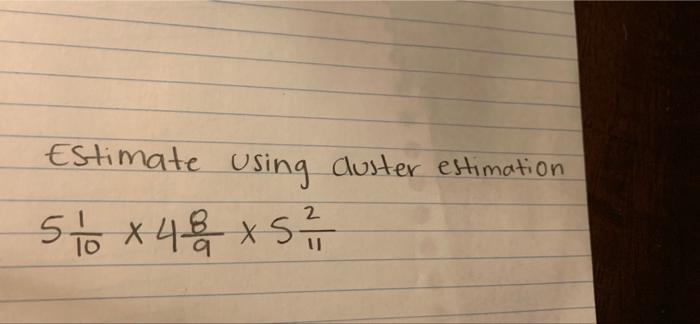 Estimate using cluster estimation
5 1/10 x 4 8/9 x 5 2/11